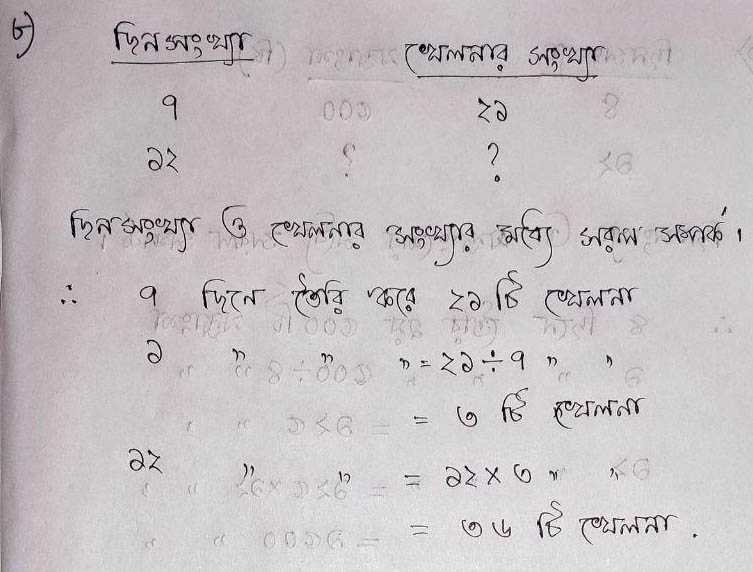 ৮) দিনসংখ্যা খেলনার সংখ্যা
৭ ২১
১২ ?
দিনসংখ্যা ও খেলনার সংখ্যার মধ্যে সরল সম্পর্ক।
∴ ৭ দিনে তৈরি করে ২১ টি খেলনা
১ " " " = ২১ ÷ ৭ " "
= ৩ টি খেলনা
১২ " " = ১২ × ৩ " "
= ৩৬ টি খেলনা.